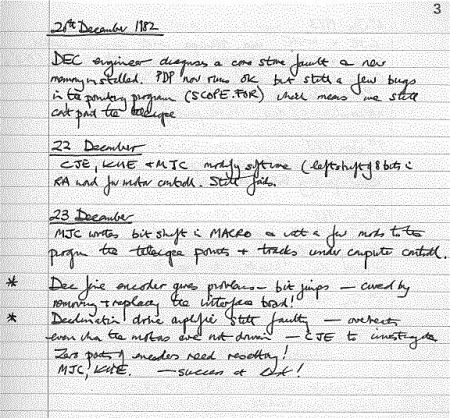 3
20th December 1982
DEC engineer diagnoses a core store fault & new
memory installed. PDP now runs ok but still a few bugs
in the pointing program (SCOPE.FOR) which means we still
can't point the telescope
22 December
CJE, KME & MJC modify software (left shift of 8 bits in
RA word for motor control. Still fails.
23 December
MJC writes bit shift in MACRO & with a few mods to the
program the telescope points + tracks under computer control.
* Dec fine encoder gives problems - bit jumps - cured by
removing + replacing the interface board!
* Declination drive amplifier still faulty - overheats
even when the motors are not driven - CJE to investigate
Zero points of encoders need resetting!
MJC, KME. - success at last!